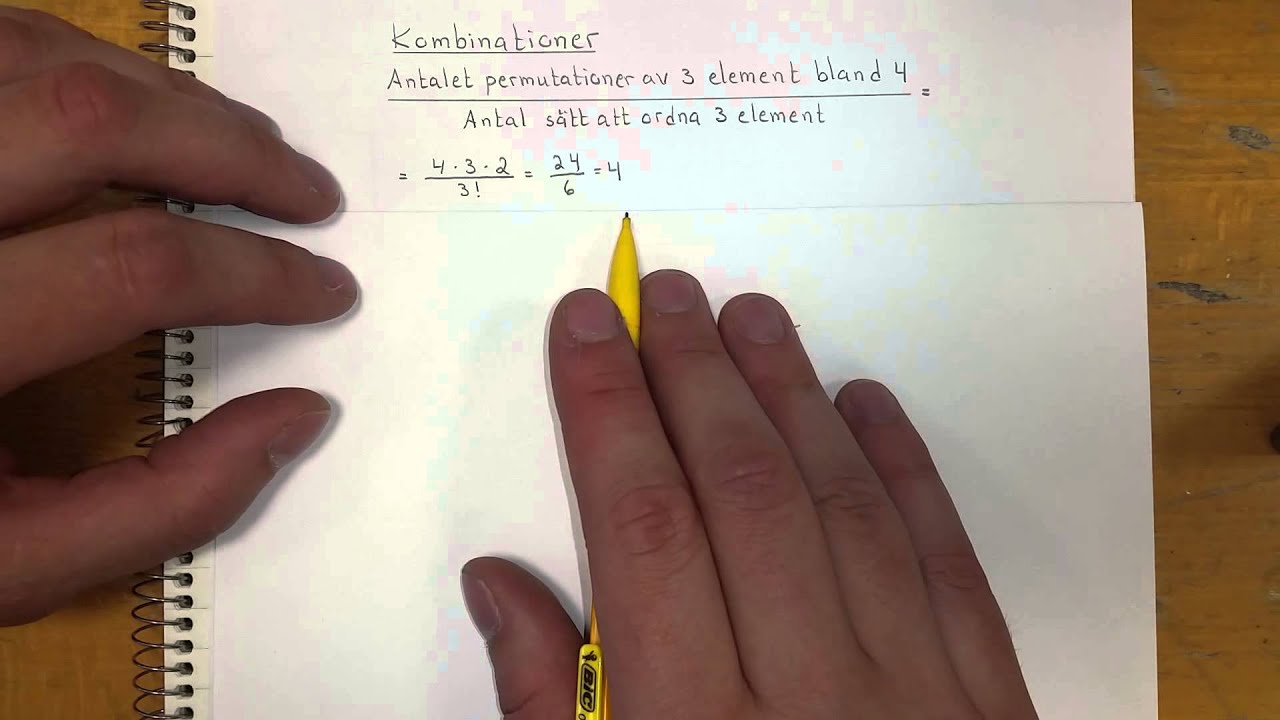 Kombinationer
Antalet permutationer av 3 element bland 4
=
Antal sätt att ordna 3 element
= 4 · 3 · 2 / 3! = 24 / 6 = 4
BIC